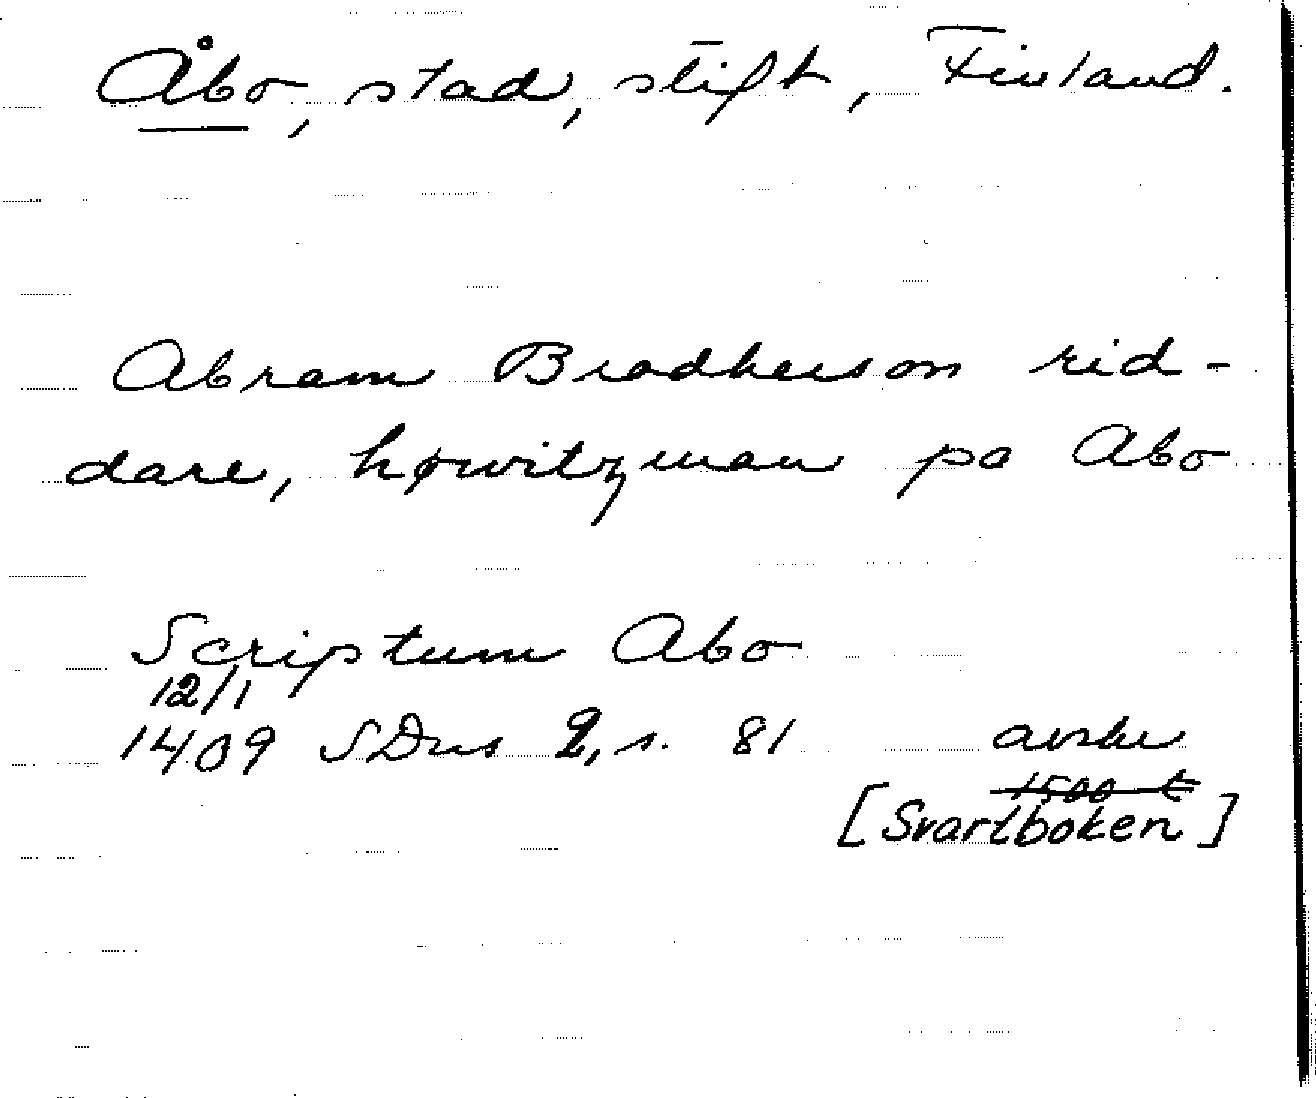 Åbo, stad, stift, Finland.
Abram Brodherson rid-
dare, høwitzman pa Abo
Scriptum Abo
12/1
1409 SDns 2, s. 81 avskr
1500 t
[Svartboken]